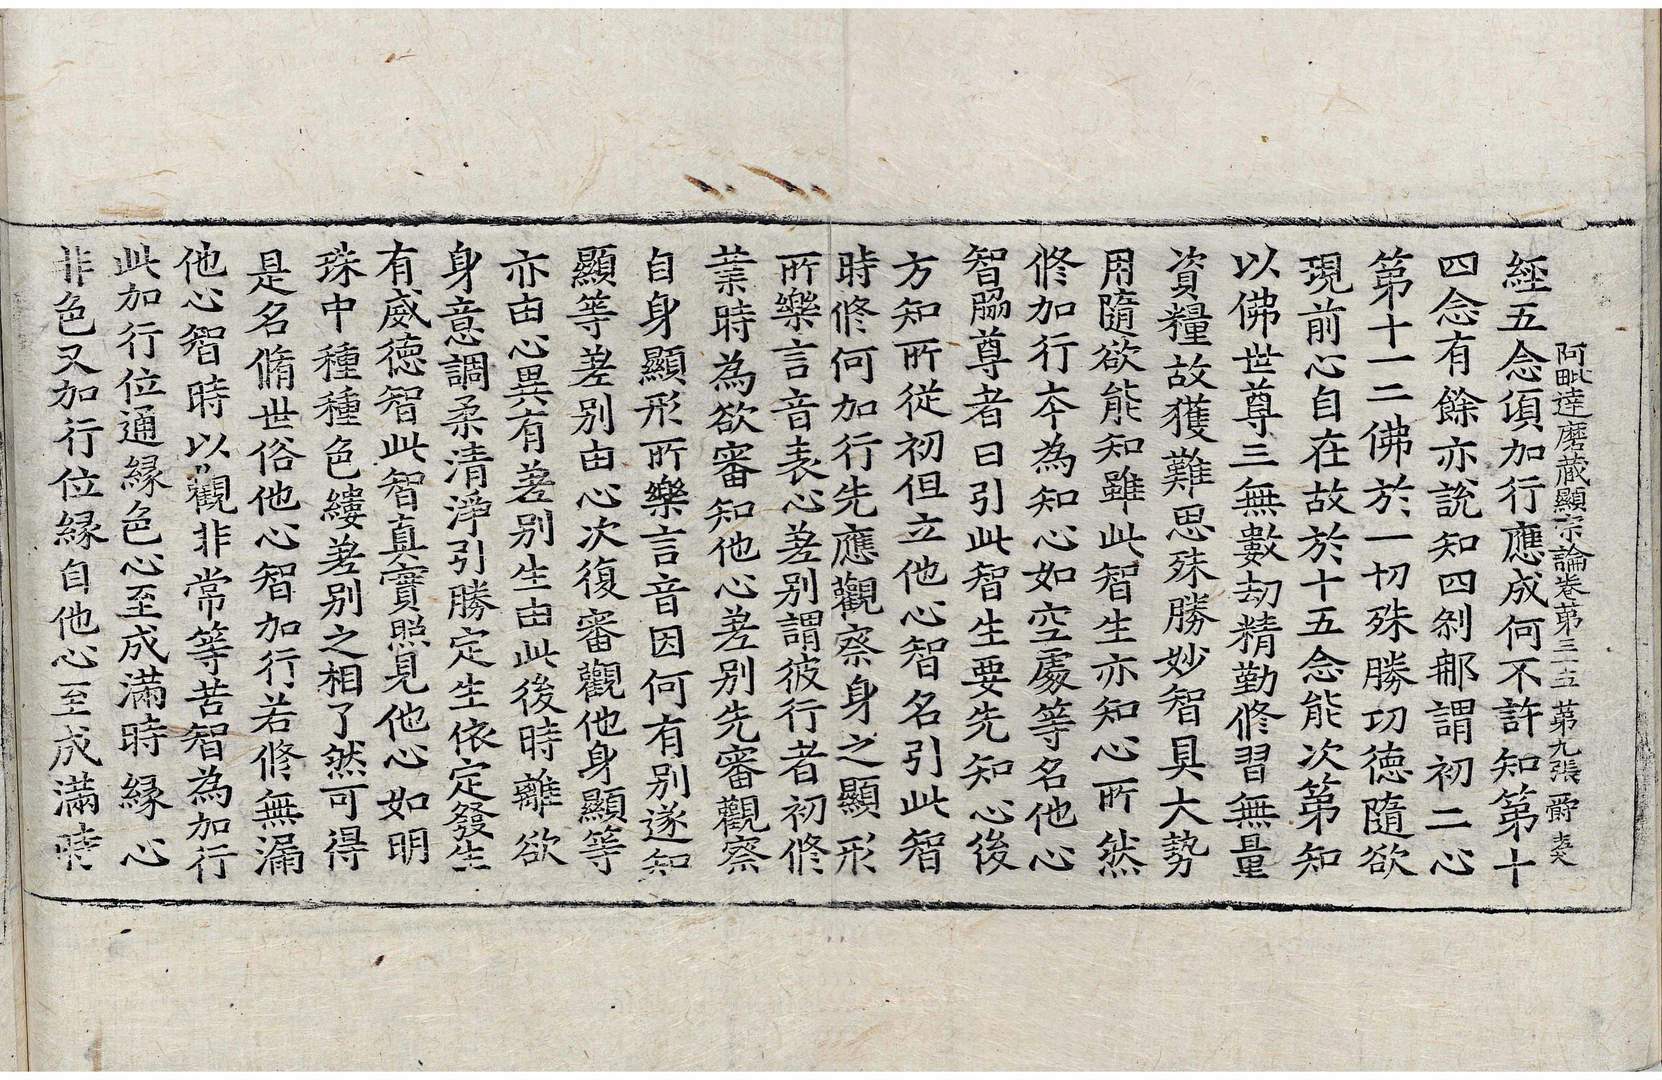 阿毗達磨藏顯宗論卷第三十五 第九張 爵
經五念湏加行應成何不許知第十
四念有餘亦說知四刹那謂初二心
第十一二佛於一切殊勝功徳隨欲
現前心自在故於十五念能次第知
以佛世尊三無數劫精勤修習無量
資糧故獲難思殊勝妙智具大勢
用隨欲能知雖此智生亦知心所然
修加行夲為知心如空處等名他心
智脇尊者曰引此智生要先知心後
方知所從初但立他心智名引此智
時修何加行先應觀察身之顯形
所樂言音表心差别謂彼行者初修
業時為欲審知他心差别先審觀察
自身顯形所樂言音因何有别遂知
顯等差别由心次復審觀他身顯等
亦由心異有差别生由此後時離欲
身意調柔清淨引勝定生依定發生
有威徳智此智真實照見他心如明
珠中種種色縷差别之相了然可得
是名脩世俗他心智加行若修無漏
他心智時以觀非常等苦智為加行
此加行位通縁色心至成滿時縁心
非色又加行位縁自他心至成滿時